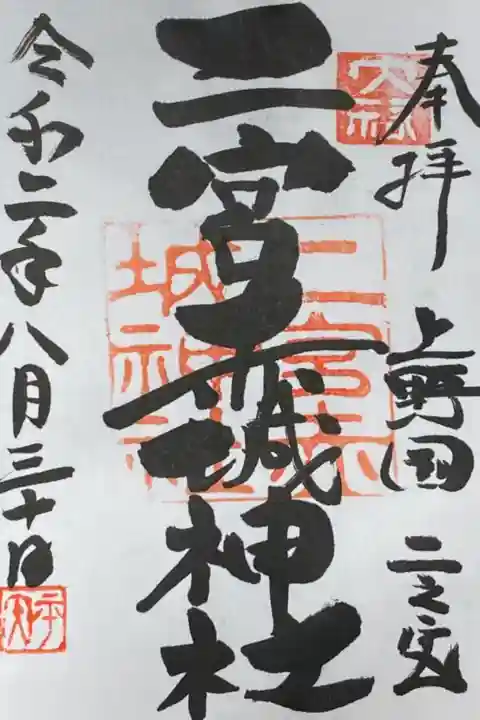 奉拝 上野国 二之宮
二宮赤城神社
二宮赤
城神社
令和二年八月三十日